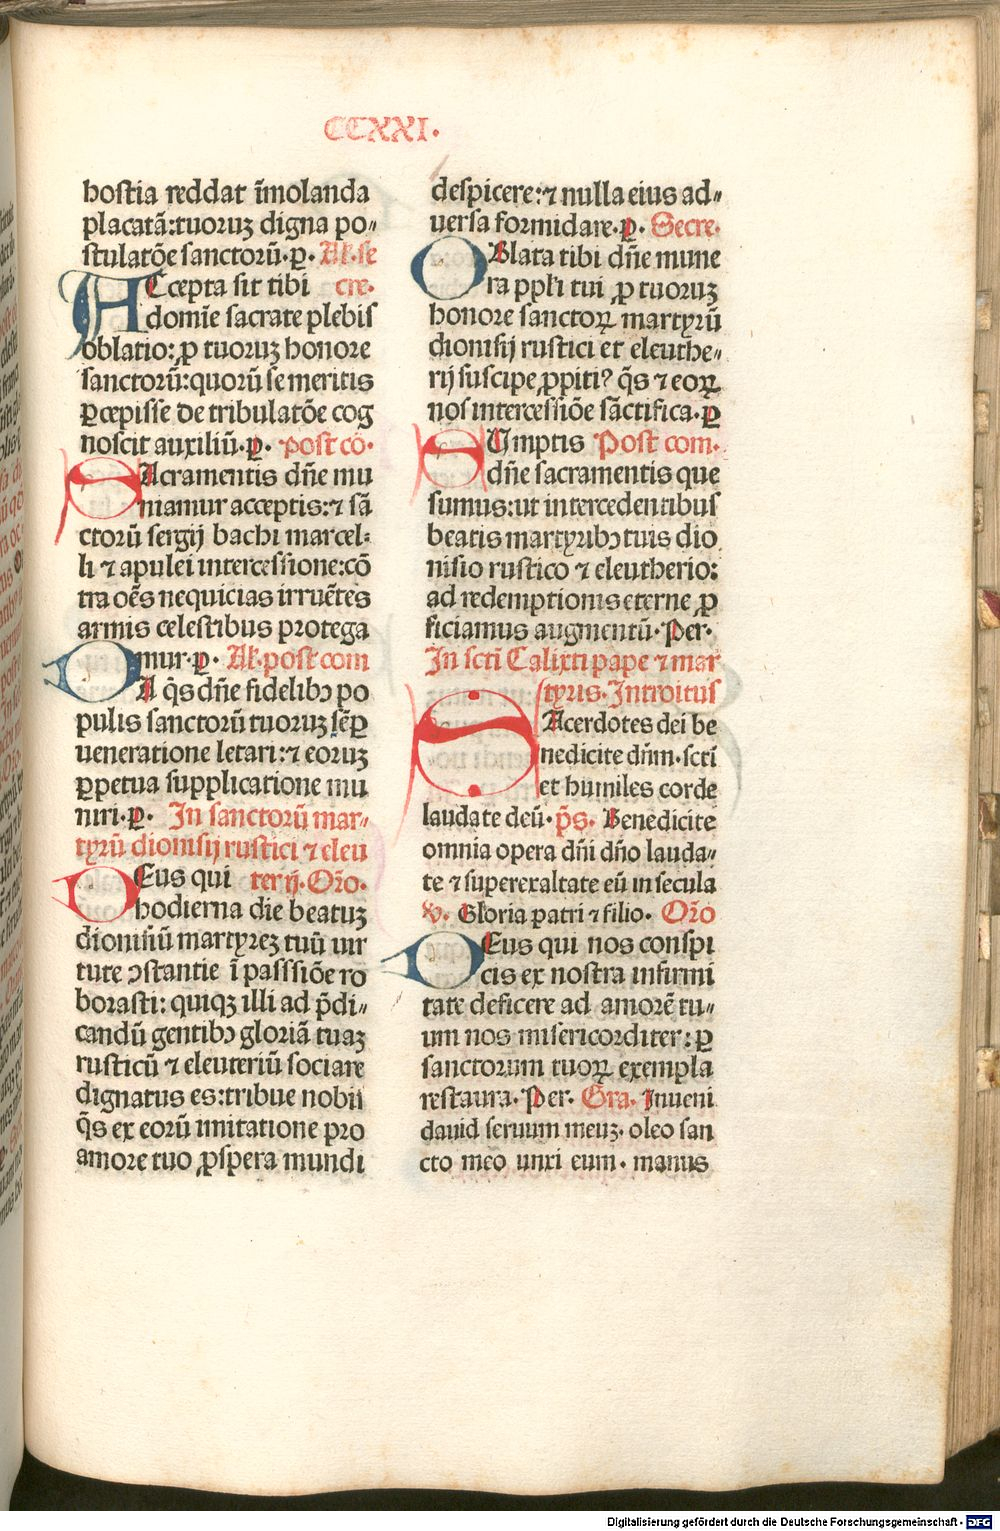 CCXXI.
hostia reddat īmolanda
placatā:tuoruꝫ digna po⸗
stulatōe sanctorū.p̲. Al.se
ACcepta sit tibi cre.
domīe sacrate plebis
oblatio:ꝓ tuoruꝫ honore
sanctorū:quorū se meritis
ꝑcepisse de tribulatōe cog
noscit auxiliū.ꝑ. post cō.
SAcramentis dn̄e mu
niamur acceptis:⁊ sā
ctorū sergij bachi marcel⸗
li ⁊ apulei intercessione:cō
tra oēs nequicias irruētes
armis celestibus protega
mur.ꝑ. Al.post com
DA q̄s dn̄e fidelibꝰ po
pulis sanctorū tuoruꝫ sēꝑ
ueneratione letari:⁊ eoruꝫ
ꝑpetua supplicatione mu
niri.ꝑ. In sanctorū mar⸗
tyrū dionisij rustici ⁊ eleu
DEus qui terij.Or̄o.
hodierna die beatuꝫ
dionisiū martyreꝫ tuū uir
tute ↄstantie ī passsiōe ro
borasti: quiqꝫ illi ad p̄di⸗
candū gentibꝰ gloriā tuaꝫ
rusticū ⁊ eleuteriū sociare
dignatus es:tribue nobis
q̄s ex eorū imitatione pro
amore tuo ꝓspera mundi
despicere:⁊ nulla eius ad⸗
uersa formidare.ꝑ. Secre.
OBlata tibi dn̄e mune
ra ppl̄i tui ꝓ tuoruꝫ
honore sanctoꝝ martyrū
dionisij rustici et eleuthe⸗
rij suscipe ꝓpitiꝰ q̄s ⁊ eoꝝ
nos intercessiōe sāctifica.ꝑ
SUmptis Post com.
dn̄e sacramentis que
sumus:ut intercedentibus
beatis martyribꝰ tuis dio
nisio rustico ⁊ eleutherio:
ad redemptionis eterne ꝓ
ficiamus augmentū.Per.
In scti Calixti pape ⁊ mar
tyris.Introitus
SAcerdotes dei be
nedicite dn̄m.scti
et humiles corde
laudate deū.p̄s. Benedicite
omnia opera dn̄i dn̄o lauda⸗
te ⁊ superexaltate eū in secula
V. Gloria patri ⁊ filio. Or̄o
DEus qui nos conspi
cis ex nostra infirmi
tate deficere ad amorē tu⸗
um nos misericorditer:ꝑ
sanctorum tuoꝝ exempla
restaura.Per. Gra. Inueni
dauid seruum meuꝫ. oleo san
cto meo unxi eum. manus
Digitalisierung gefördert durch die Deutsche Forschungsgemeinschaft - DFG